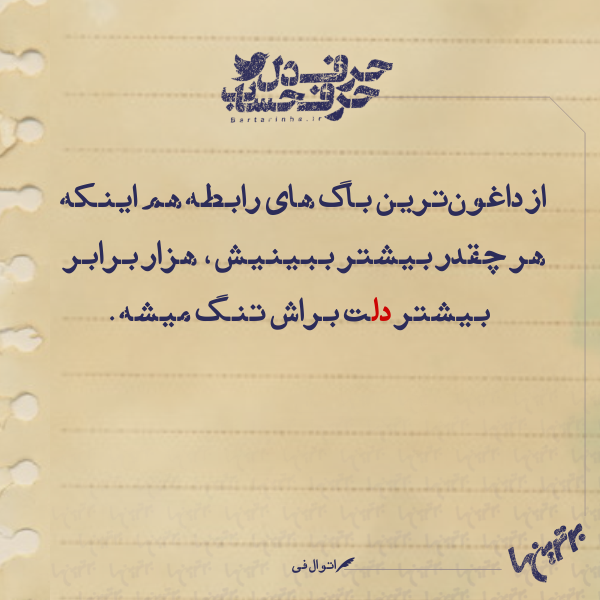 حرف دل
حرف حساب
Bartarinha.ir
از داغون‌ترین باگ های رابطه هم اینکه
هر چقدر بیشتر ببینیش، هزار برابر
بیشتر دلت براش تنگ میشه.
اتوال فی
برترین‌ها